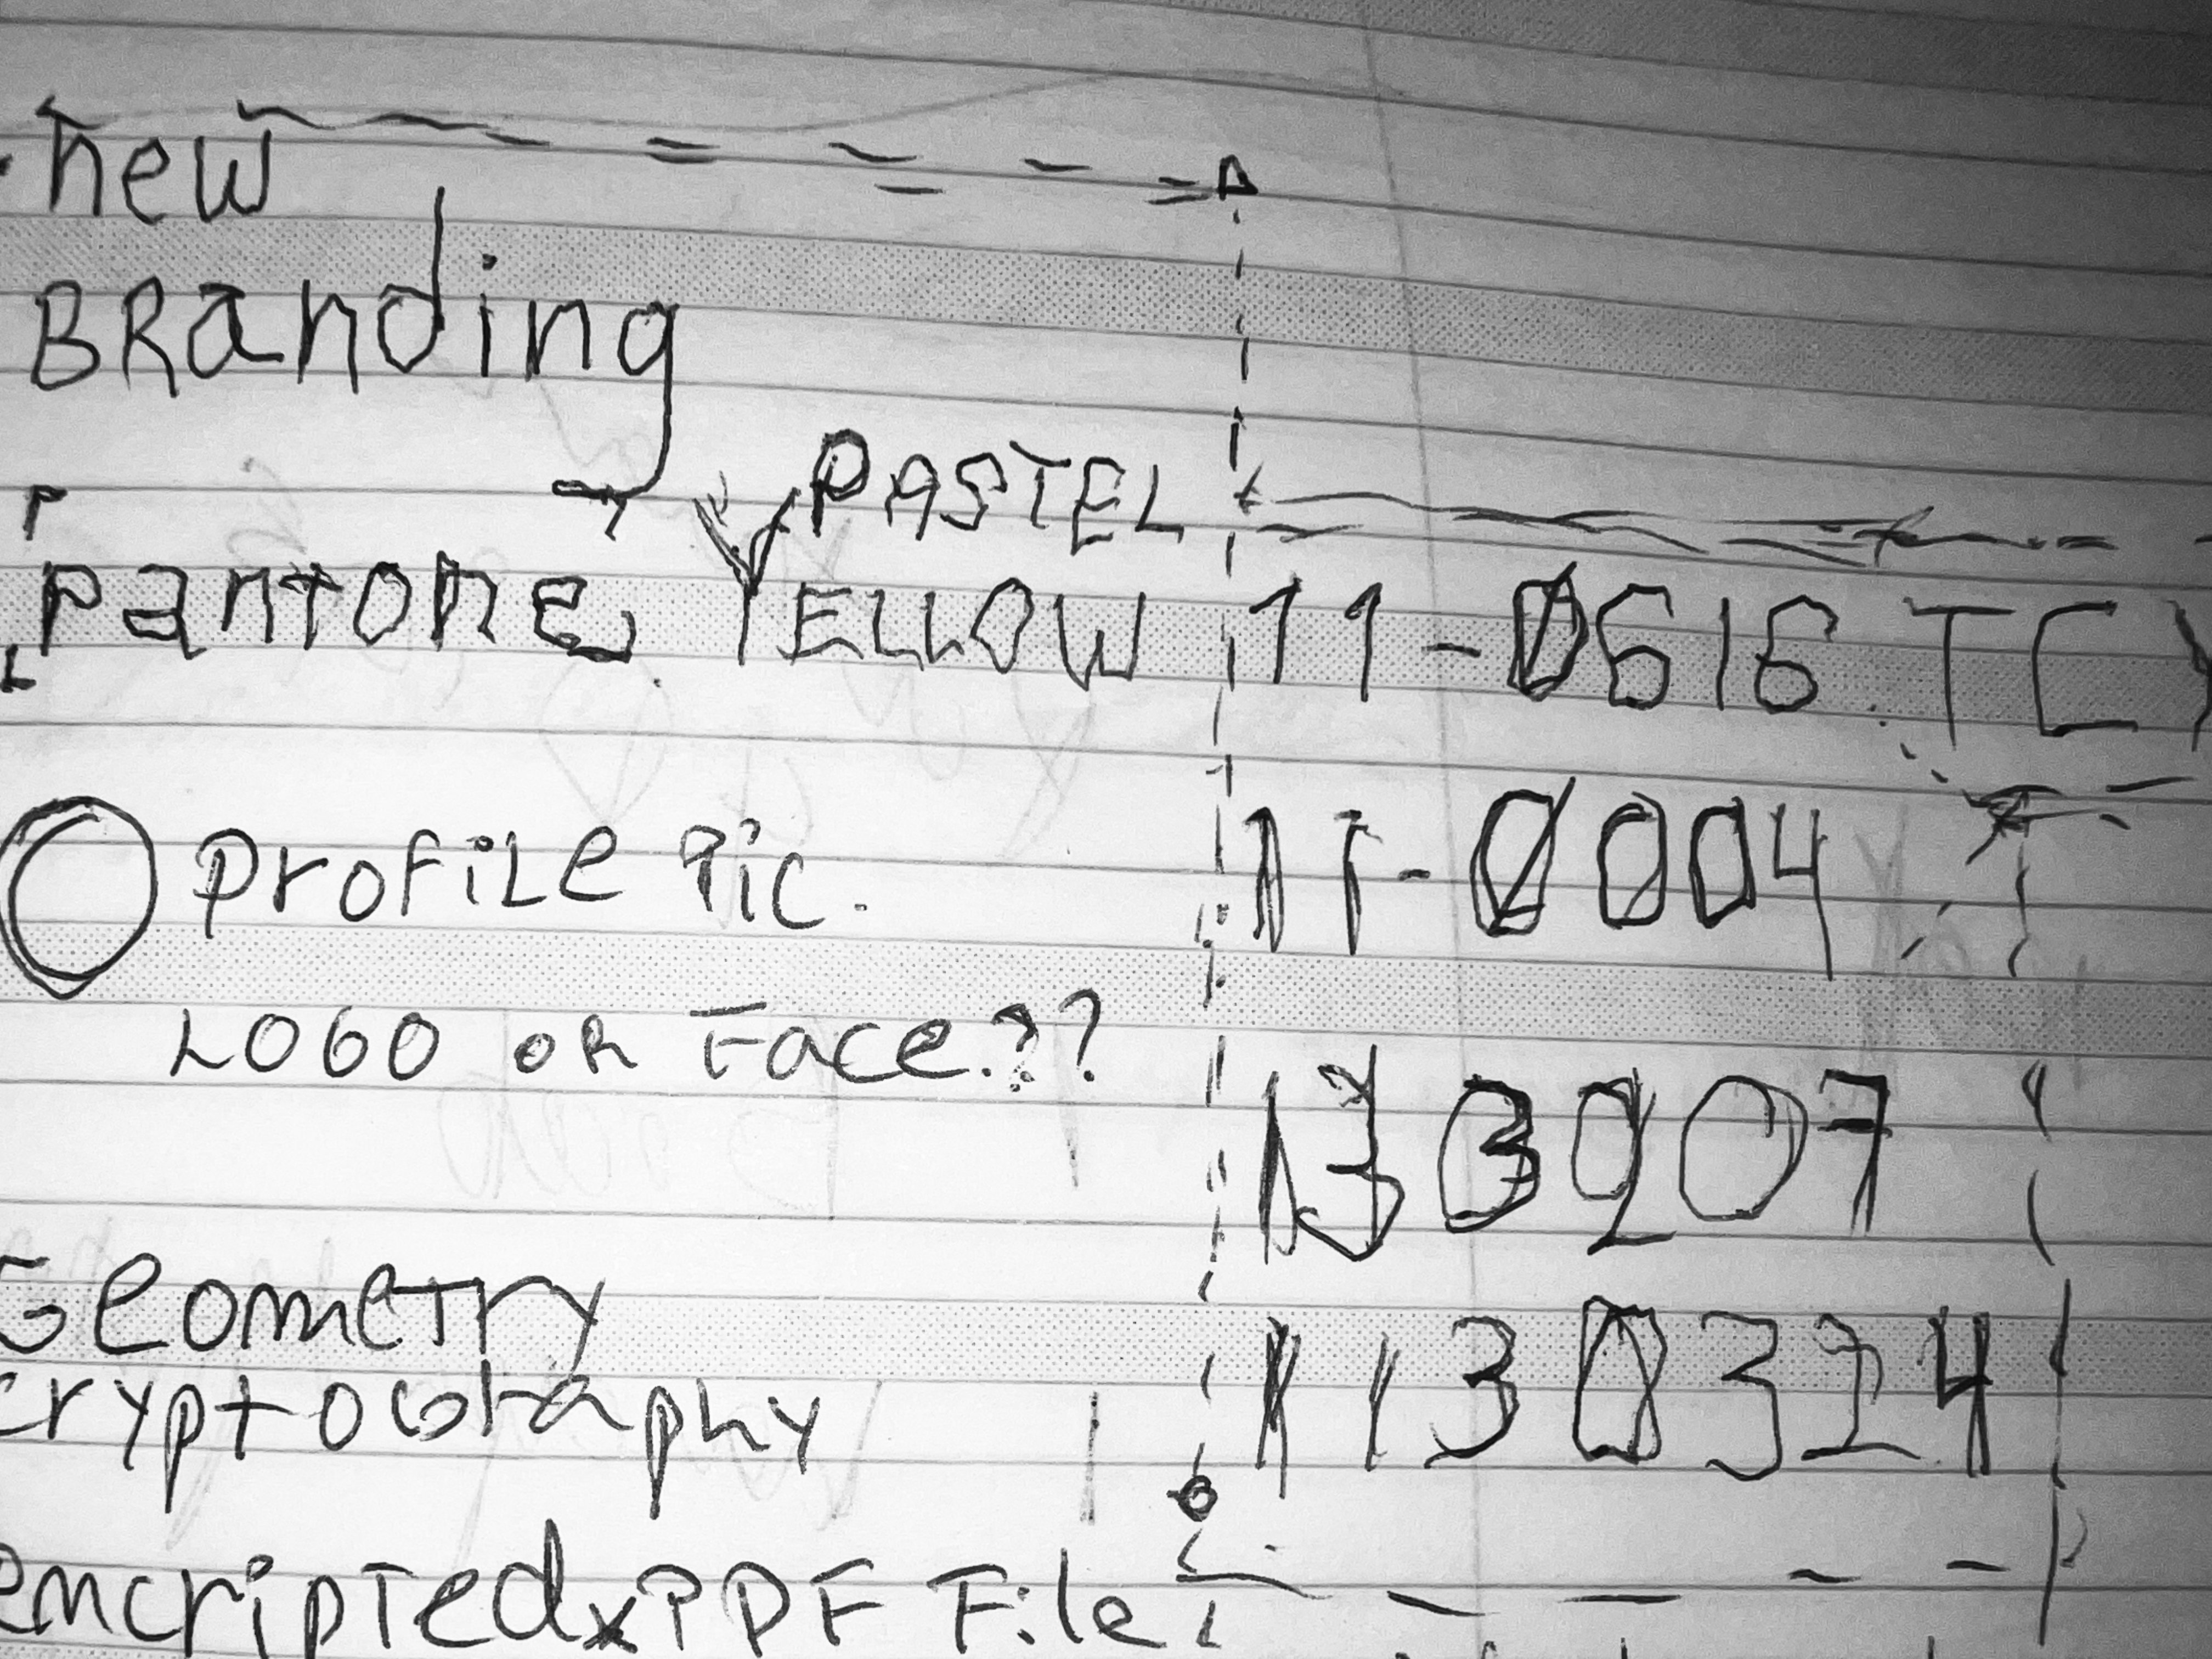 new
BRanding
PASTEL
Pantone, YELLOW 11-0616 TCX
Profile Pic. 11-0004
LOGO OR Face.??
133207
Geometry
1130324
cryptography
encripted x PDF File